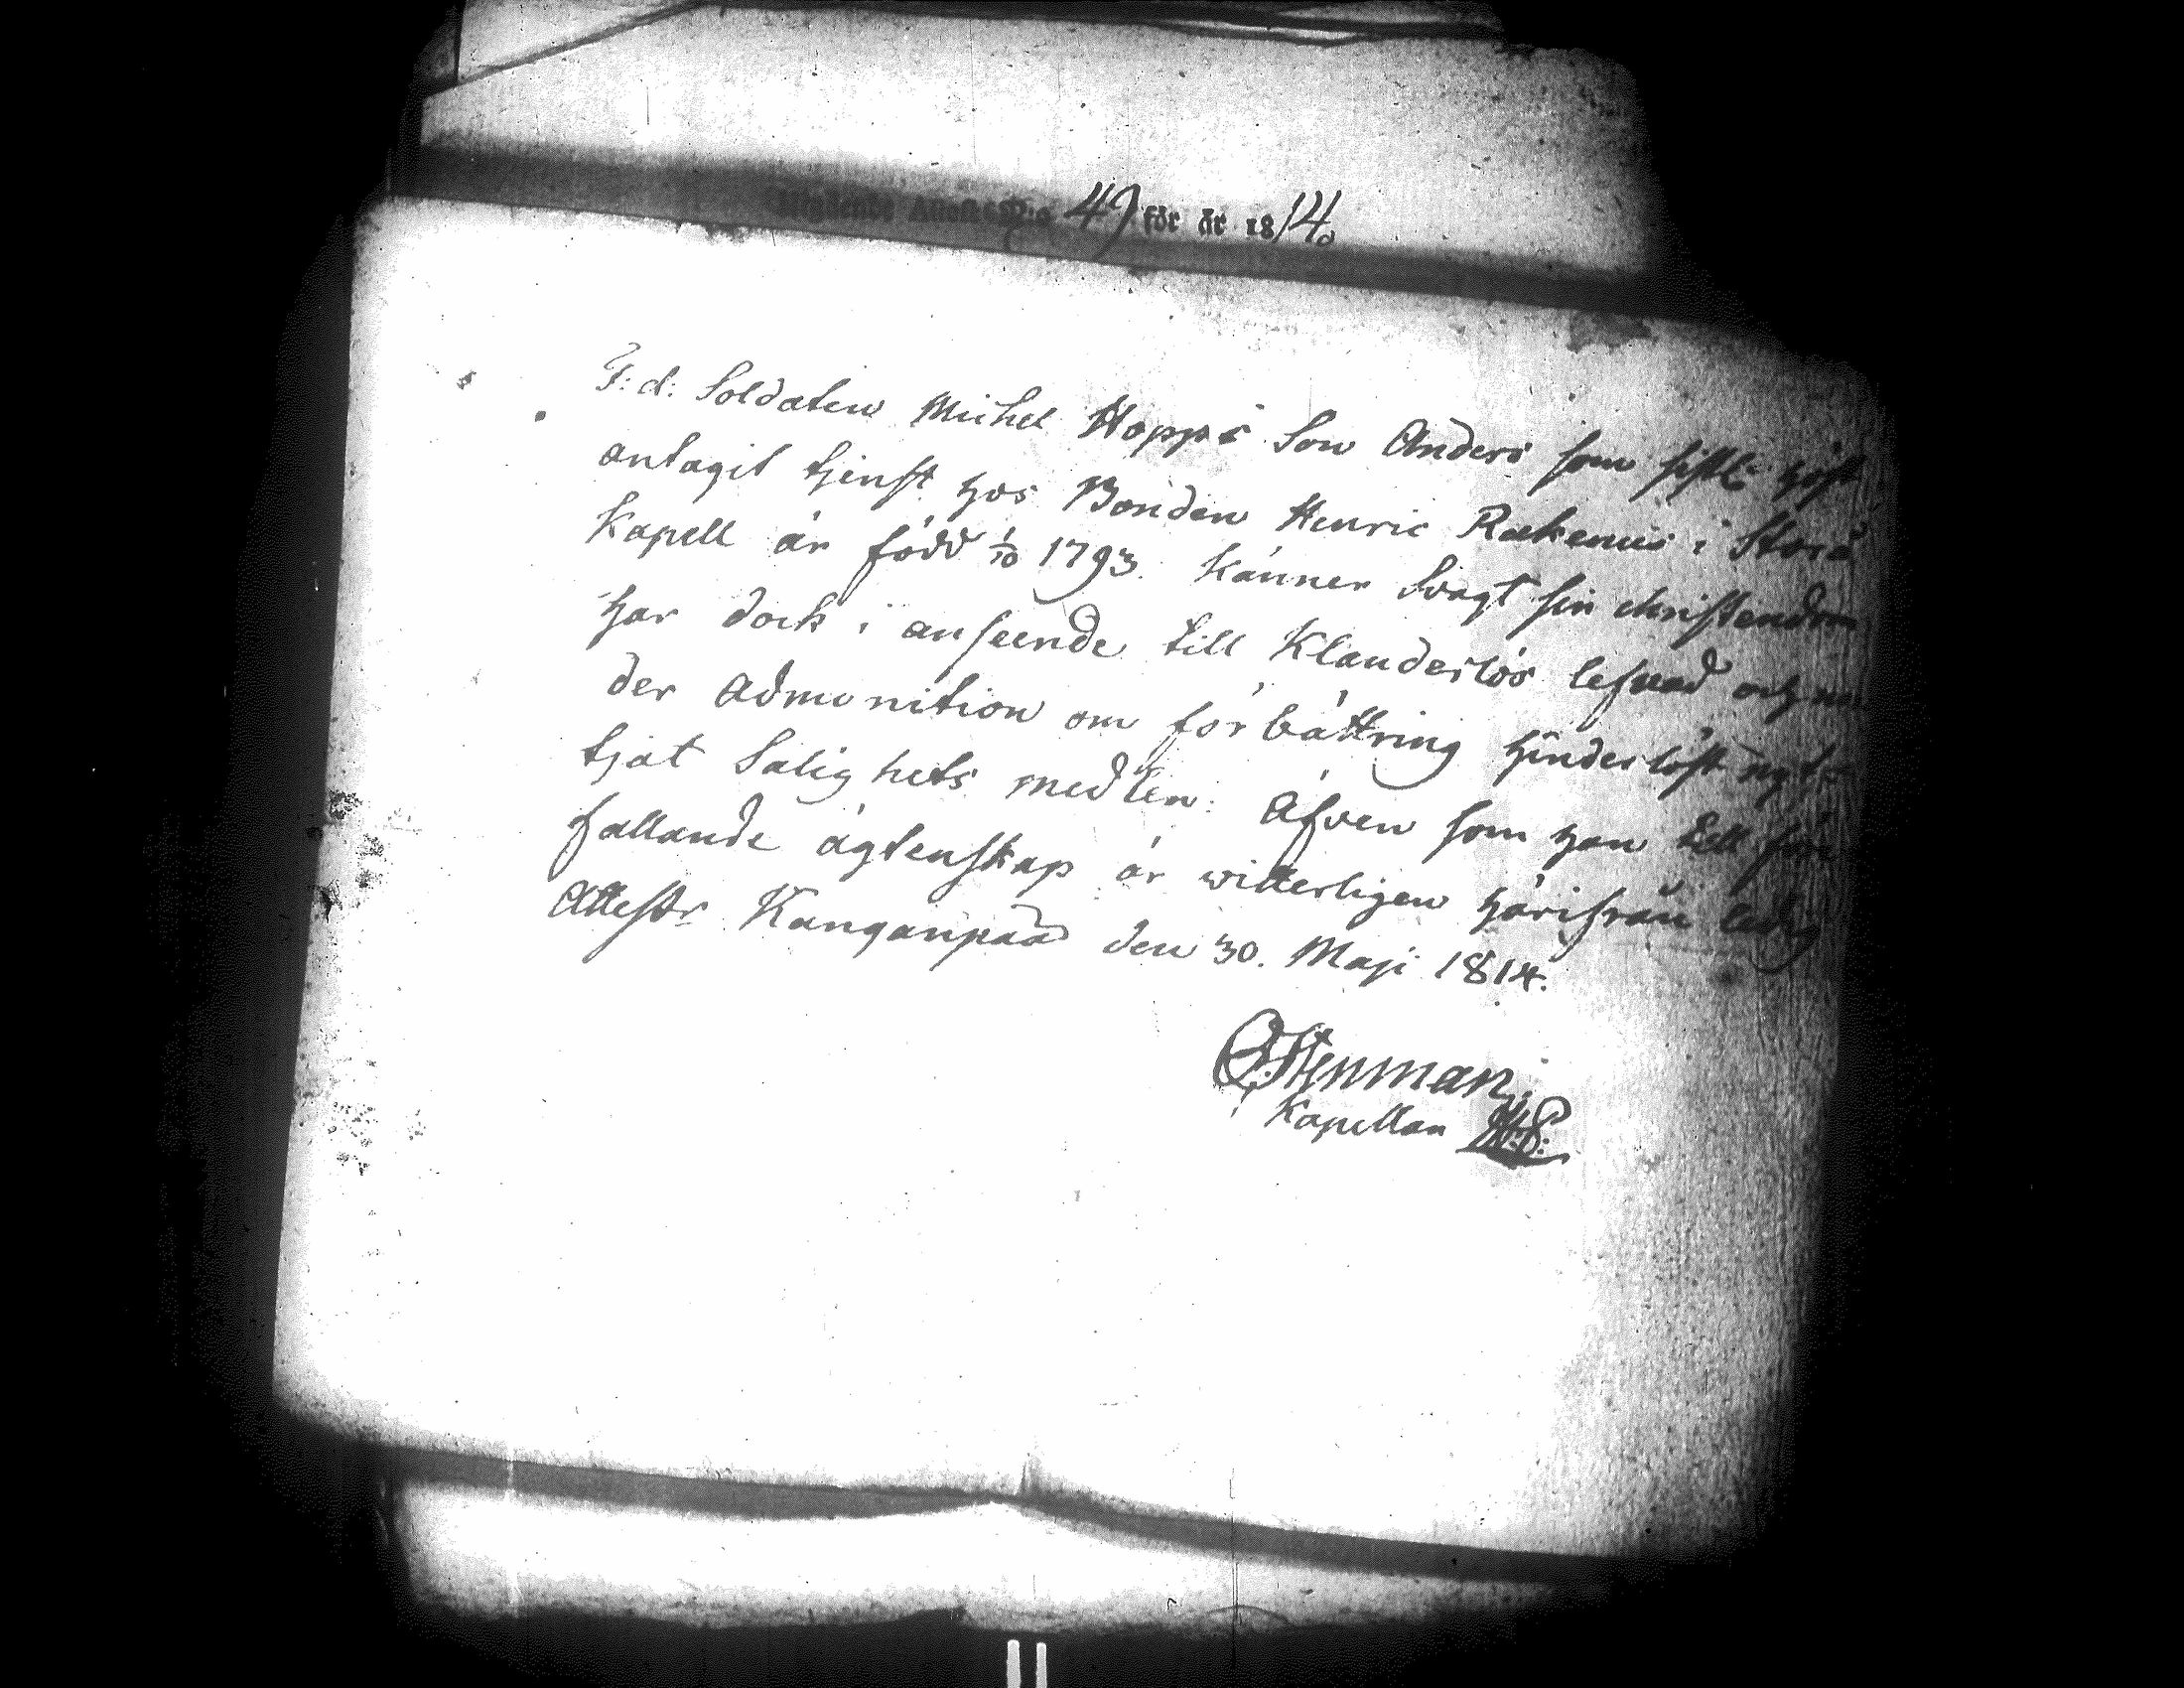 Utgående Attester No 49 för år 1814.
F: d: Soldaten Michel Hopps Son Anders som sistl: höst
antagit tjenst hos Bonden Henric Rækenus i Storå
Kapell är född 1/10 1793. känner Svagt sin christendom
har dock i anseende till Klanderlös lefnad och un
der Admonition om förbättring hinderlöst nyt
tjat Salighets medlen: Äfven som han till före
fallande ägtenskap är witterligen härifrån ledig
Attestr Kanganpää den 30. Maji 1814.
Stenman
Kapellan